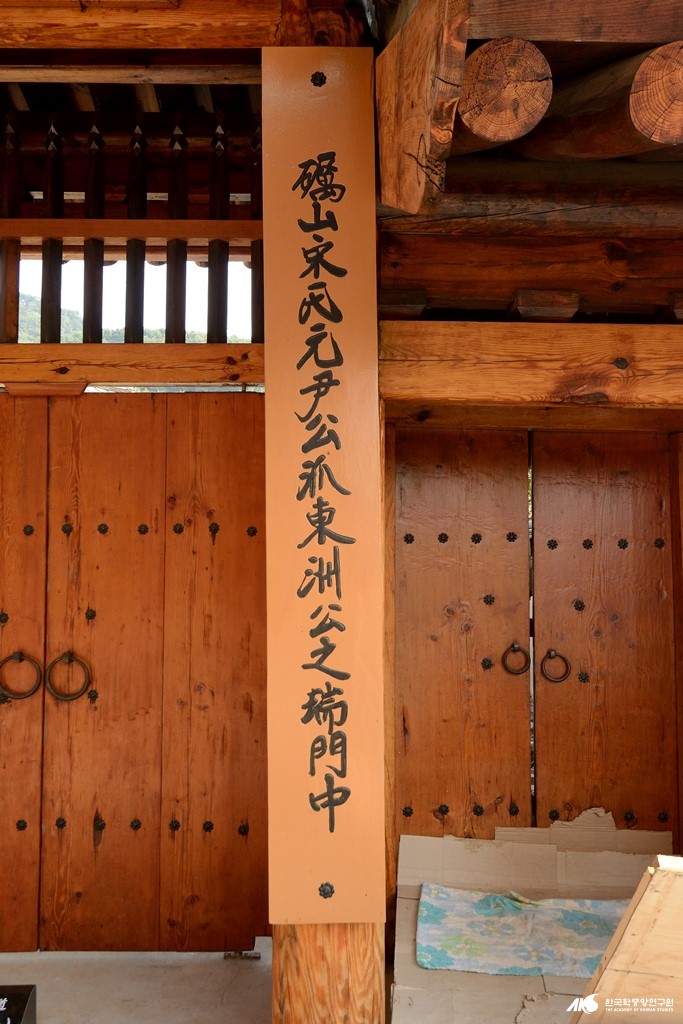 礪山宋氏元尹公派東洲公之瑞門中
한국학중앙연구원
THE ACADEMY OF KOREAN STUDIES